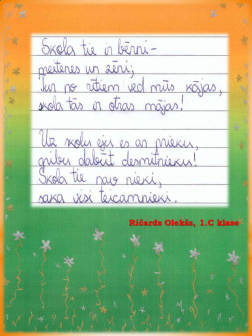 Skola tie ir bērni-
meitenes un zēni;
Jur no rītiem ved mūs kājas,
skola tās ir otras mājas!
Uz skolu eju es ar prieku,
gribu dabūt desmitnieku!
Skola tie nav nieki,
saka visi teicamnieki.
Ričards Olekšs, 1.C klase